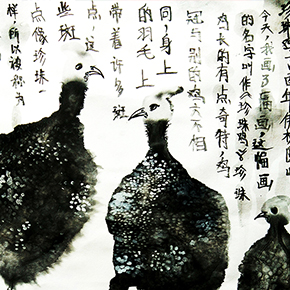 今天，我画了幅画，这幅画
的名字叫作珍珠鸡，珍珠
鸡长的有点奇特，鸡
冠与别的鸡大不相
同，身上
的羽毛上
带着许多斑
点，这
些斑
点像珍珠一
样，所以被称为